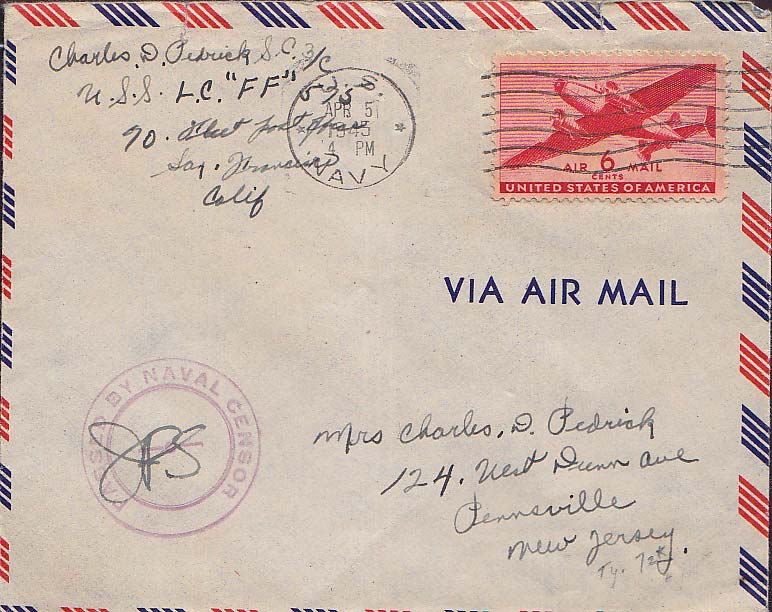 Charles. D. Pedrick S.C. 3/C
U.S.S. L.C. "FF" 573
Fleet Post
San. Francisco
Calif
U. S.
APR 5
1945
4 PM
NAVY
AIR 6 MAIL
CENTS
UNITED STATES OF AMERICA
VIA AIR MAIL
PASSED BY NAVAL CENSOR
JPS
Mrs Charles. D. Pedrick
124. West Dunn Ave
Pennsville
New Jersey.